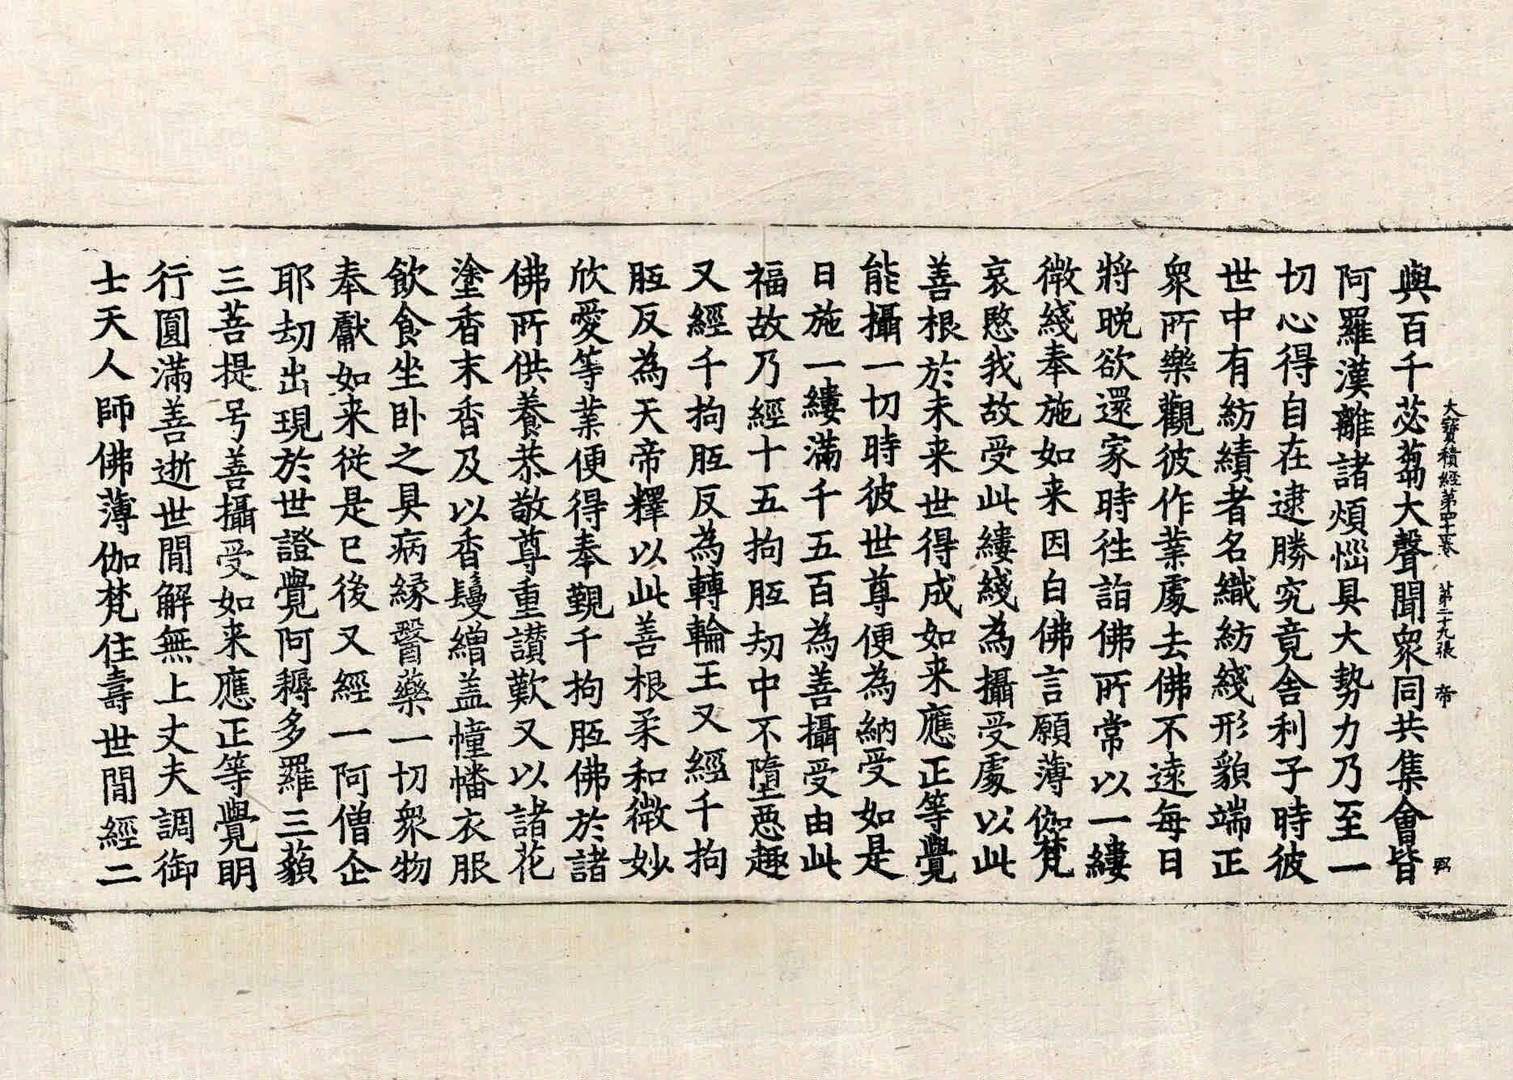 大寶積經第四十卷 苐二十九張 帝
與百千苾蒭大聲聞衆同共集會皆
阿羅漢離諸煩惱具大勢力乃至一
切心得自在逮勝究竟舍利子時彼
世中有紡績者名織紡綫形貌端正
衆所樂觀彼作業處去佛不遠每日
將晚欲還家時徃詣佛所常以一縷
微綫奉施如来因白佛言願薄伽梵
哀愍我故受此縷綫為攝受處以此
善根於未来世得成如来應正等覺
能攝一切時彼世尊便為納受如是
日施一縷滿千五百為善攝受由此
福故乃經十五拘胝劫中不墮惡趣
又經千拘胝反為轉輪王又經千拘
胝反為天帝釋以此善根柔和微妙
欣愛等業便得奉覲千拘胝佛於諸
佛所供養恭敬尊重讃歎又以諸花
塗香末香及以香鬘繒盖幢幡衣服
飲食坐卧之具病縁醫藥一切衆物
奉獻如来從是已後又經一阿僧企
耶劫出現於世證覺阿耨多羅三藐
三菩提号善攝受如来應正等覺明
行圓滿善逝世間解無上丈夫調御
士天人師佛薄伽梵住壽世間經二